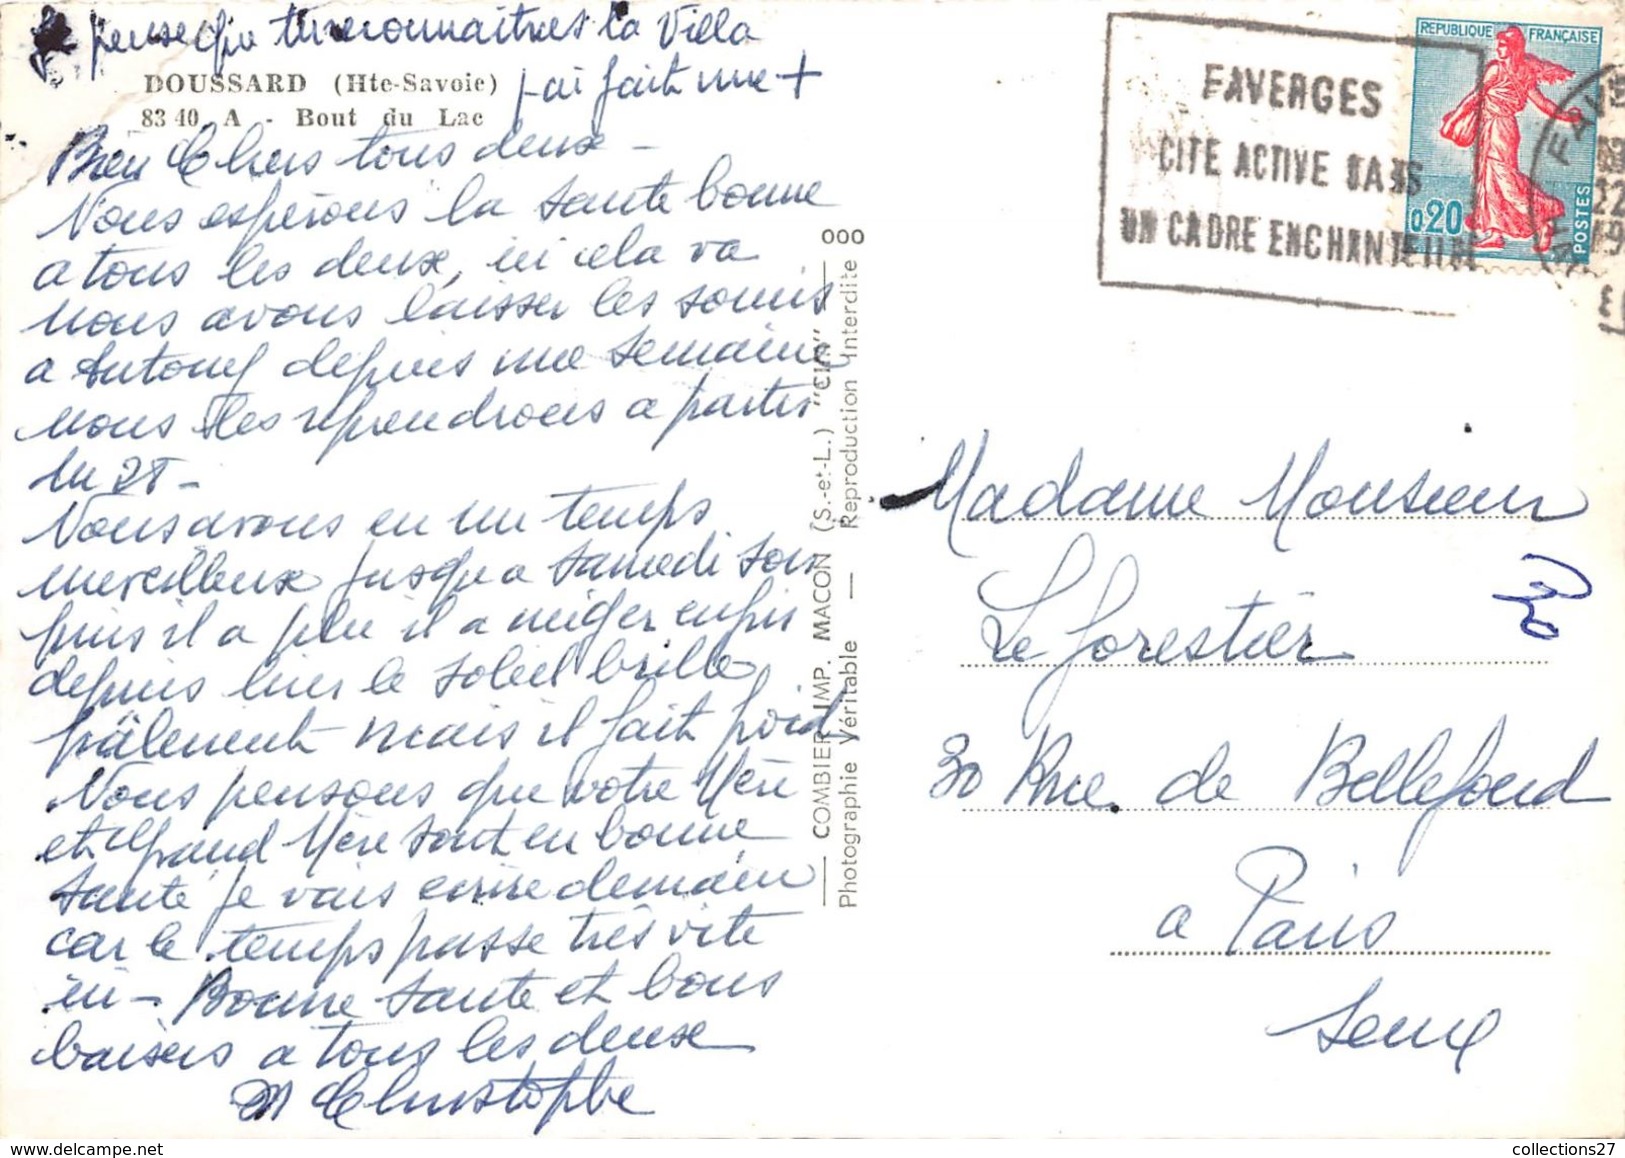 Je pense que tu reconnaitras la Villa
j'ai fait une +
DOUSSARD (Hte-Savoie)
83 40 A - Bout du Lac
Bien Chers tous deux -
Nous espérons la Santé bonne
a tous les deux, ici cela va
nous avons laisser les
a depuis une Semaine
nous les reprendrons a partir
du 28 -
Nous avons eu un temps
merveilleux jusqu'a Samedi soir
puis il a plu il a neiger enfin
depuis hier le Soleil brille
pâlement mais il fait froid
Nous pensons que votre Mère
et Grand Mère sont en bonne
Santé je vais écrire demain
car le temps passe très vite
ici - Bonne Santé et bons
baisers a tous les deux
M Christophe
000
COMBIER IMP. MACON (S.-et-L.) "CIM"
Photographie Véritable — Reproduction Interdite
FAVERGES
CITE ACTIVE DANS
UN CADRE ENCHANTEUR
REPUBLIQUE FRANÇAISE
0,20
POSTES
Madame Monsieur
Le forestier
30 Rue de Bellefond
a Paris
Seine
collections27